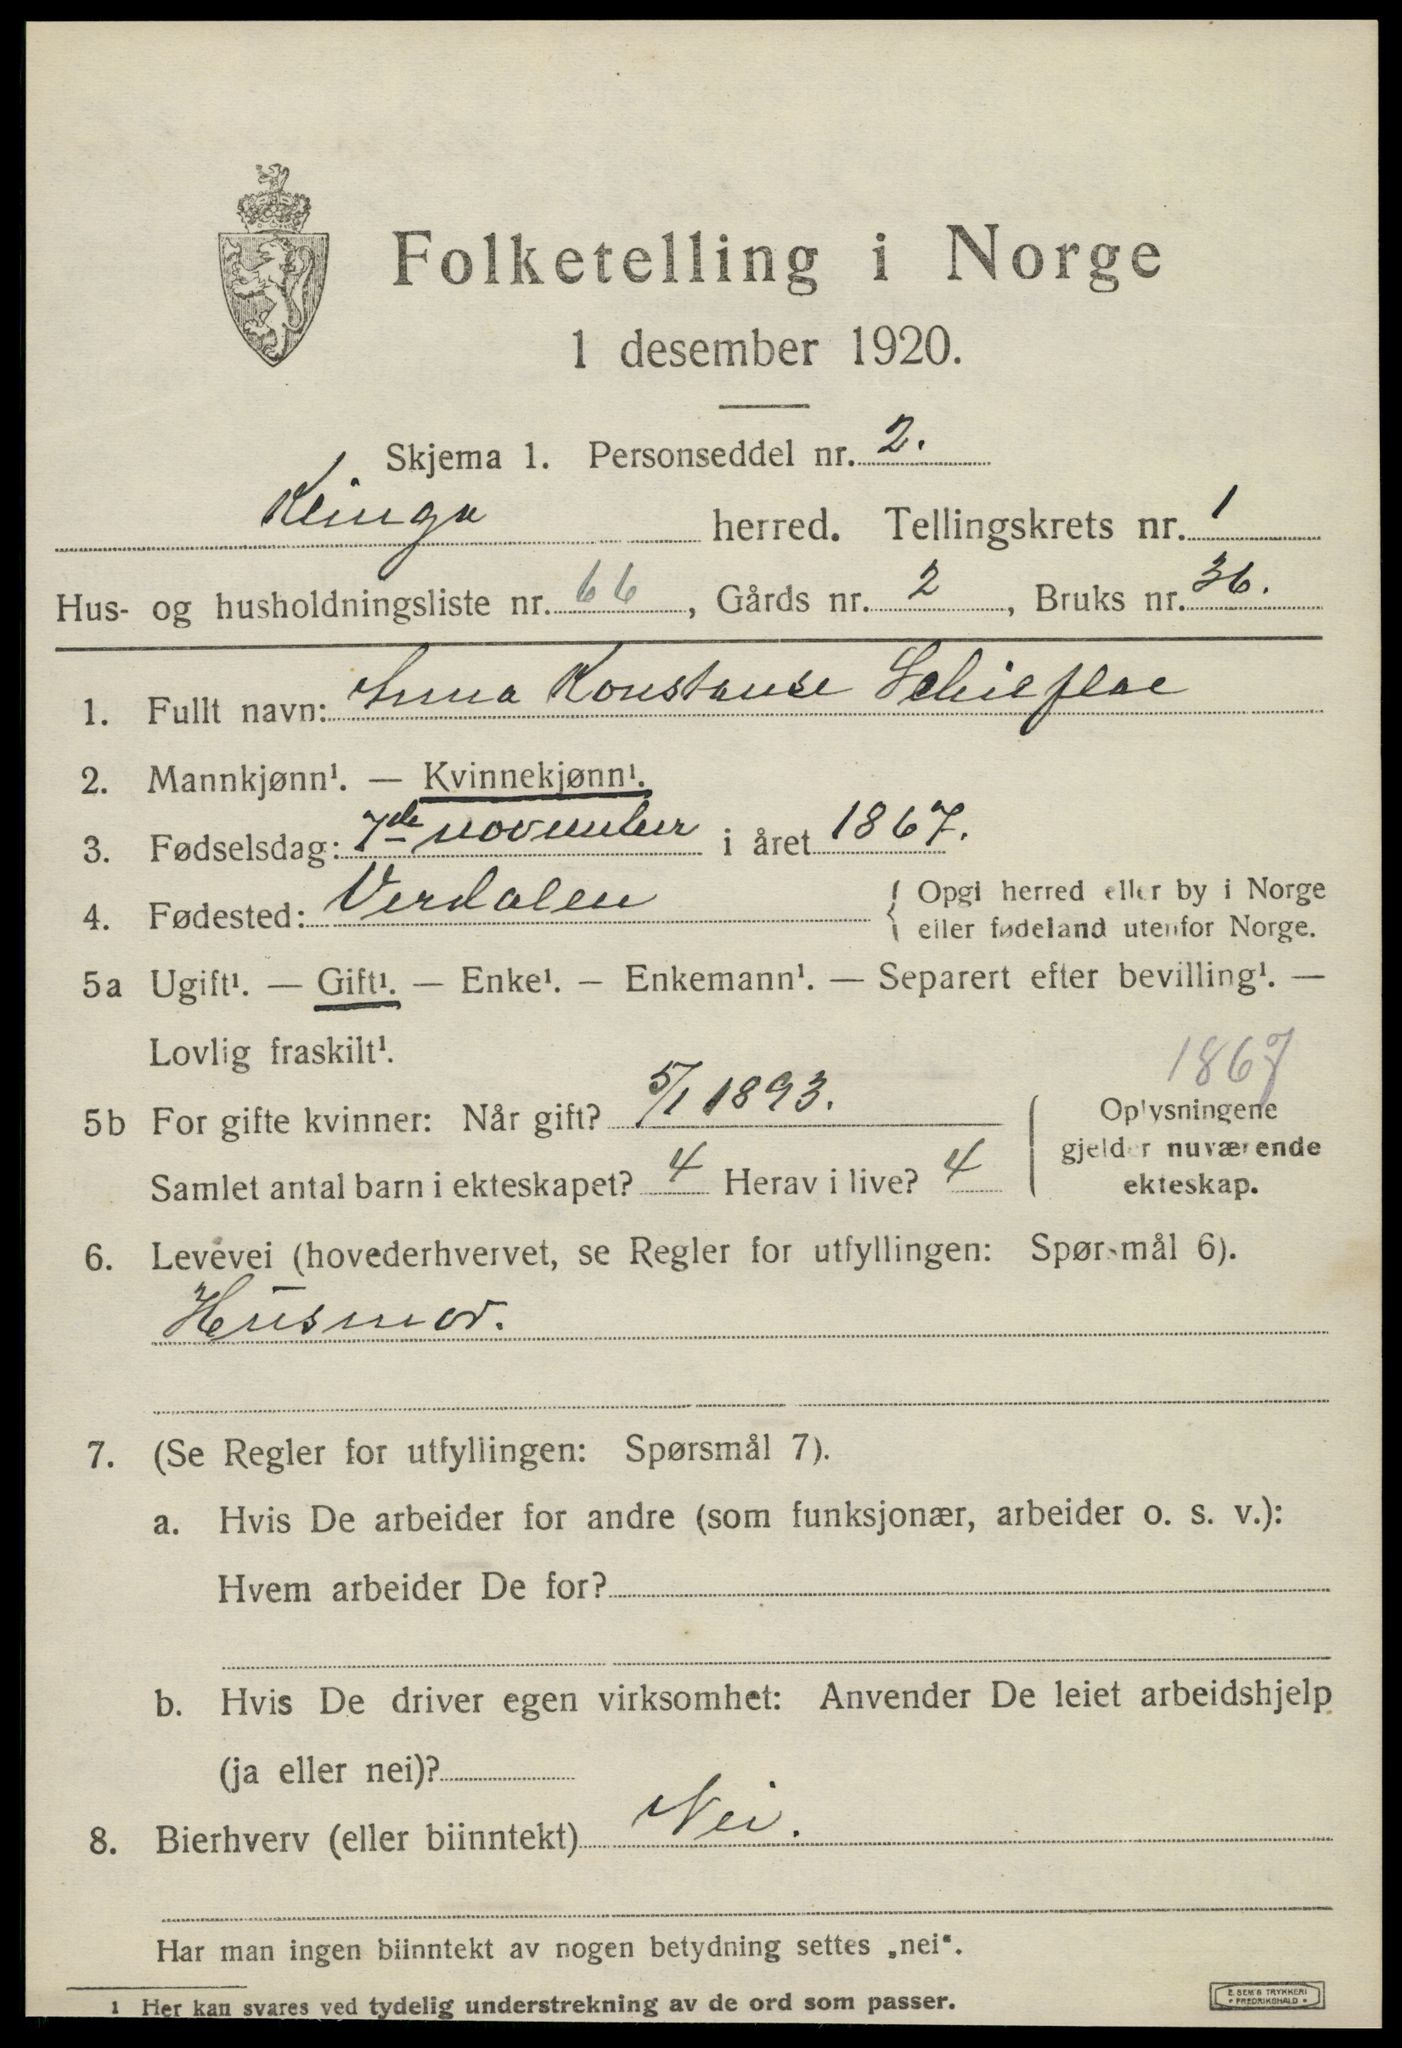 Folketelling i Norge
1 desember 1920.
Skjema 1. Personseddel nr. 2.
Klinga herred. Tellingskrets nr. 1
Hus- og husholdningsliste nr. 66, Gårds nr. 2, Bruks nr. 36.
1. Fullt navn: Anna Konstanse Schieflae
2. Mannkjønn¹. — Kvinnekjønn¹.
3. Fødselsdag: 7de november i året 1867.
4. Fødested: Verdalen { Opgi herred eller by i Norge
eller fødeland utenfor Norge.
5a Ugift¹. — Gift¹. — Enke¹. — Enkemann¹. — Separert efter bevilling¹. —
Lovlig fraskilt¹.
1867
5b For gifte kvinner: Når gift? 5/1 1893.
Samlet antal barn i ekteskapet? 4 Herav i live? 4
Oplysningene
gjelder nuværende
ekteskap.
6. Levevei (hovederhvervet, se Regler for utfyllingen: Spørsmål 6).
Husmor.
7. (Se Regler for utfyllingen: Spørsmål 7).
a. Hvis De arbeider for andre (som funksjonær, arbeider o. s. v.):
Hvem arbeider De for?
b. Hvis De driver egen virksomhet: Anvender De leiet arbeidshjelp
(ja eller nei)?
8. Bierhverv (eller biinntekt) Nei.
Har man ingen biinntekt av nogen betydning settes „nei“.
1 Her kan svares ved tydelig understrekning av de ord som passer.
E. SEM'S TRYKKERI
• FREDRIKSHALD •